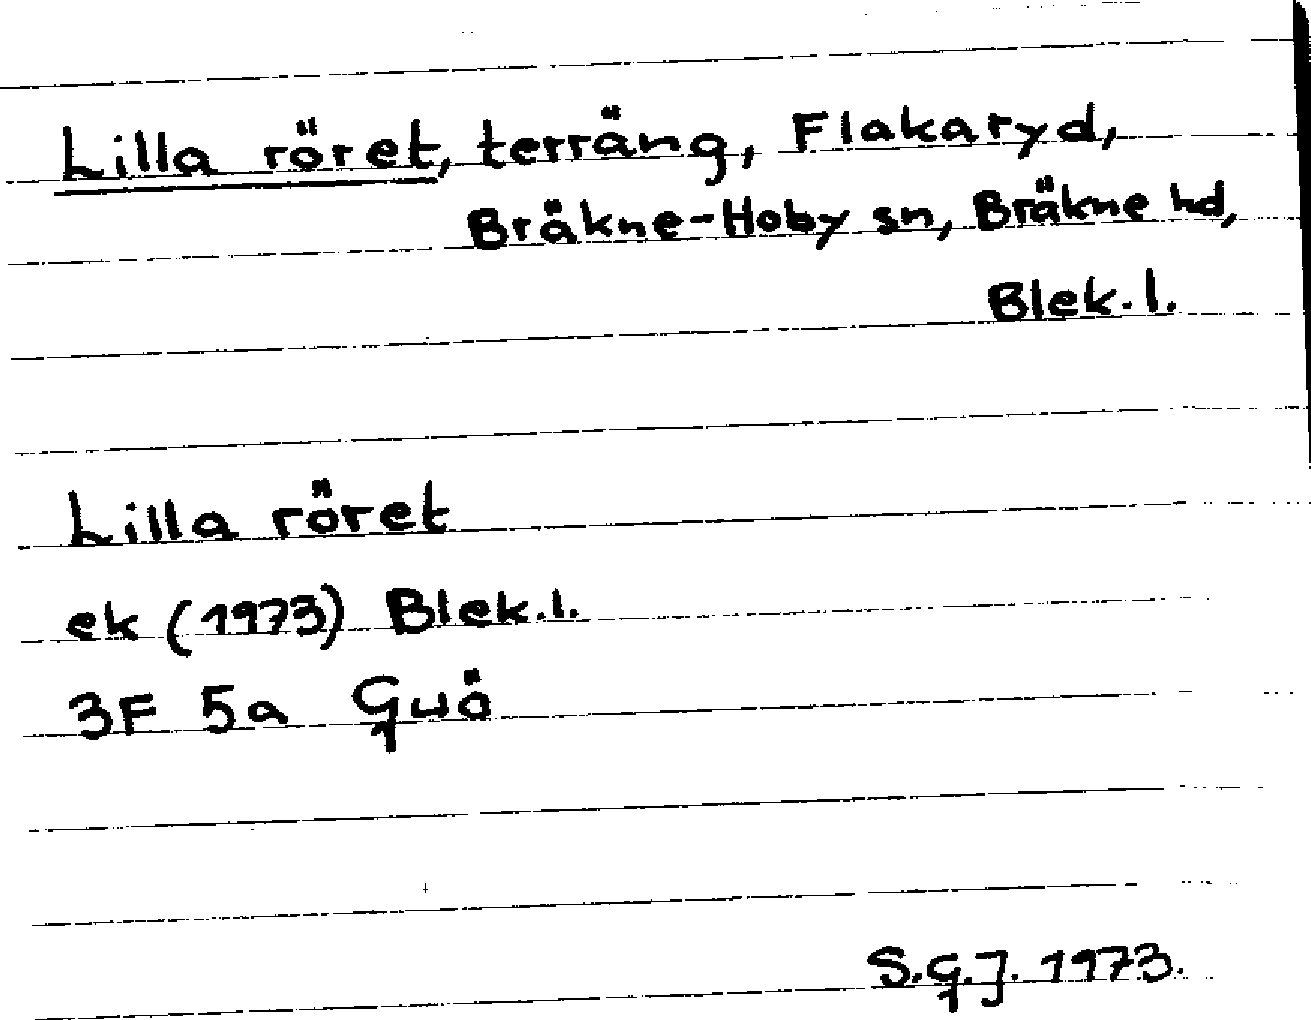 Lilla röret, terräng, Flakaryd,
Bräkne-Hoby sn, Bräkne hd,
Blek.l.
Lilla röret
ek (1973) Blek.l.
3F 5a Guö
S.G.J. 1973.